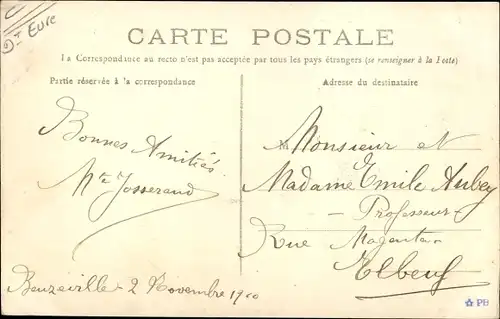 Eure
CARTE POSTALE
La Correspondance au recto n'est pas acceptée par tous les pays étrangers (se renseigner à la Poste)
Partie réservée à la correspondance
Adresse du destinataire
Bonnes Amitiés
Josserand
Beuzeville - 2 Novembre 1910
M
Monsieur et
Madame Emile Aubey
- Professeur
Rue Magenta -
Elbeuf
PB